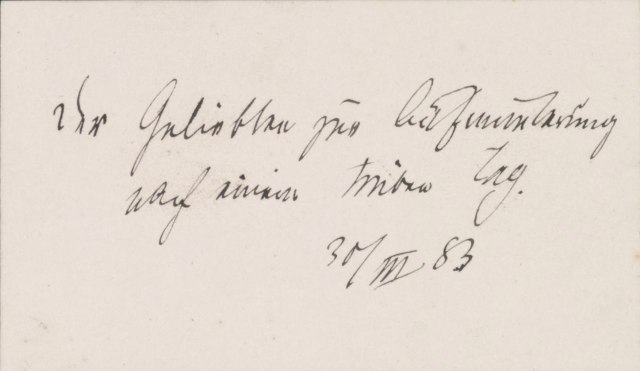 Der Geliebten zur Aufmunterung
nach einem trüben Tag.
30/III 83